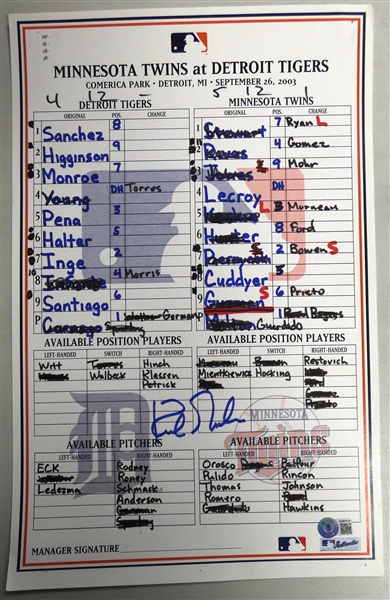 HP -
1B -
2B -
3B -
MINNESOTA TWINS at DETROIT TIGERS
COMERICA PARK • DETROIT, MI • SEPTEMBER 26, 2003
4 12 - 5 12 1
DETROIT TIGERS MINNESOTA TWINS
ORIGINAL POS. CHANGE ORIGINAL POS. CHANGE
1 Sanchez 8 1 Stewart 7 Ryan L
2 Higginson 9 2 4 Gomez
3 Monroe 7 3 Jones S 9 Mohr
4 Young DH Torres 4 Lecroy DH
5 Pena 3 5 L 3 Morneau
6 Halter 5 6 Hunter 8 Ford
7 Inge 2 7 S 2 Bowen S
8 4 Morris 8 Cuddyer 5
9 Santiago 6 9 Guzman S 6 Prieto
P 1 German P 1 Guardado
AVAILABLE POSITION PLAYERS AVAILABLE POSITION PLAYERS
LEFT-HANDED SWITCH RIGHT-HANDED LEFT-HANDED SWITCH RIGHT-HANDED
Witt Torres Hinch Restovich
Walbeck Klassen Mientkiewicz Hocking
Petrick
MINNESOTA
Twins
AVAILABLE PITCHERS AVAILABLE PITCHERS
LEFT-HANDED RIGHT-HANDED LEFT-HANDED RIGHT-HANDED
ECK Rodney Orosco Balfour
Roney Pulido Rincon
Ledezma Schmack Thomas Johnson
Anderson Romero
Hawkins
MANAGER SIGNATURE
Authentic